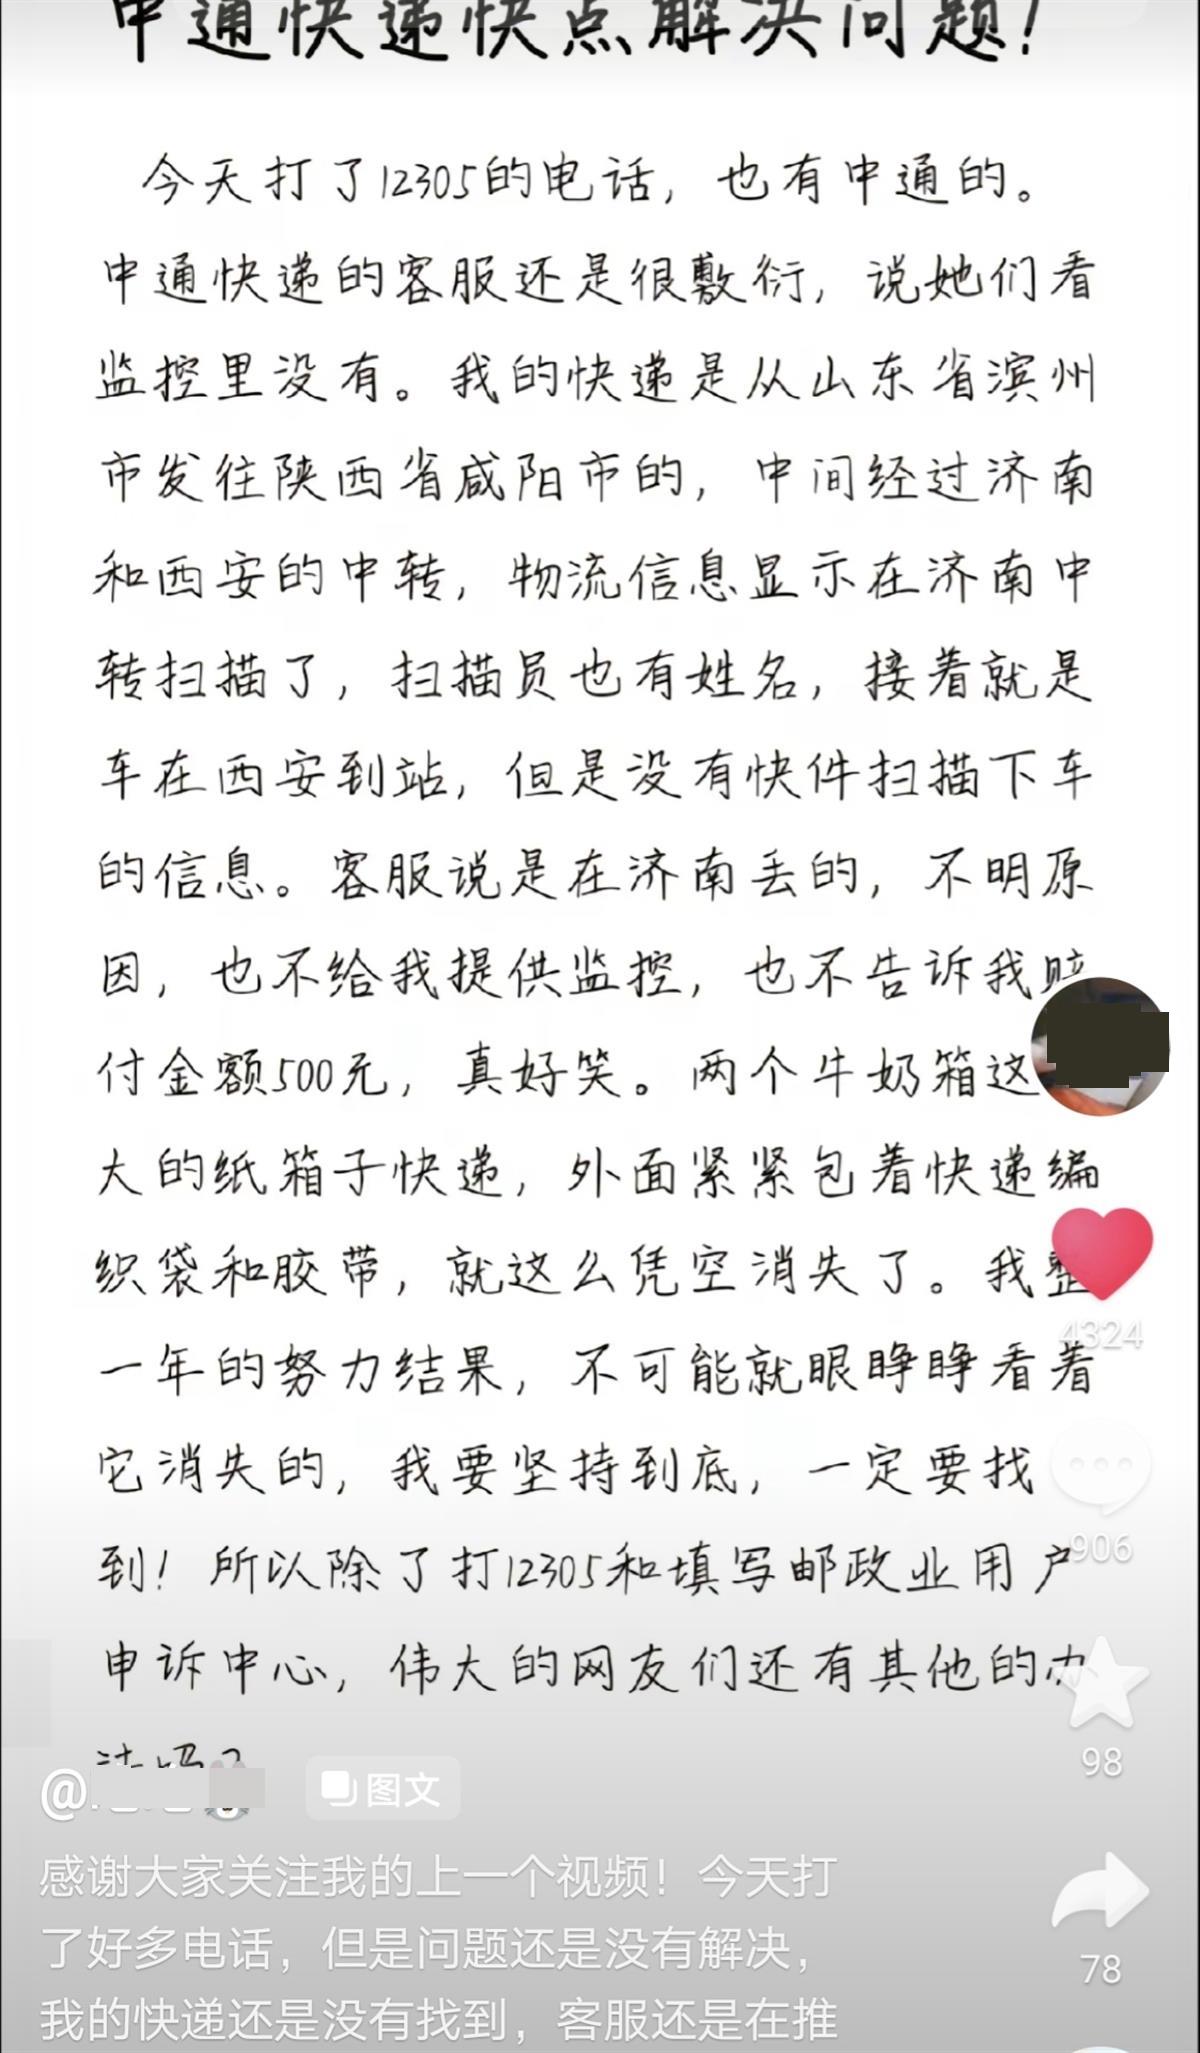 申通快递快点解决问题！
今天打了12305的电话，也有申通的。
申通快递的客服还是很敷衍，说她们看
监控里没有。我的快递是从山东省滨州
市发往陕西省咸阳市的，中间经过济南
和西安的中转，物流信息显示在济南中
转扫描了，扫描员也有姓名，接着就是
车在西安到站，但是没有快件扫描下车
的信息。客服说是在济南丢的，不明原
因，也不给我提供监控，也不告诉我赔
付金额500元，真好笑。两个牛奶箱这
大的纸箱子快递，外面紧紧包着快递编
织袋和胶带，就这么凭空消失了。我整
一年的努力结果，不可能就眼睁睁看着
它消失的，我要坚持到底，一定要找
到！所以除了打12305和填写邮政业用户
申诉中心，伟大的网友们还有其他的办
法吗？
4324
906
98
78
@
图文
感谢大家关注我的上一个视频！今天打
了好多电话，但是问题还是没有解决，
我的快递还是没有找到，客服还是在推